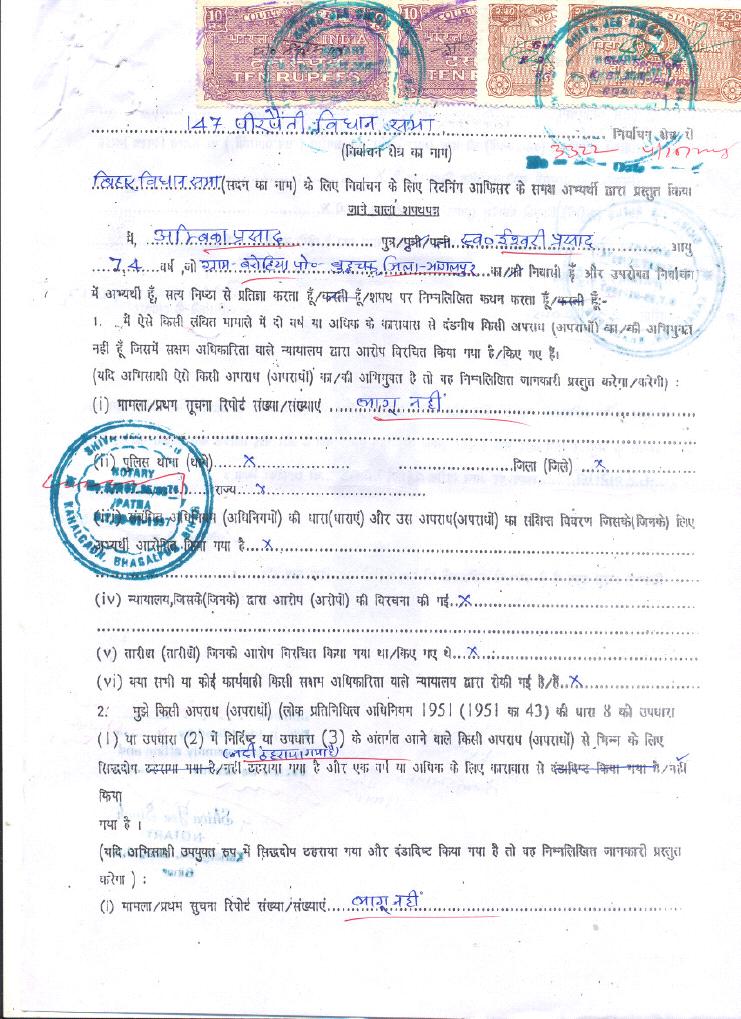 10 COURT 10 COURT 2.40 WEL STAMP 2.50
भारत INDIA भारत
TEN RUPEES TEN
SHIVA JEE SINGH NOTARY SHIVA JEE SINGH NOTARY
147 पीरपैंती विधान सभा निर्वाचन क्षेत्र से
(निर्वाचन क्षेत्र का नाम)
3322
No Date
बिहार विधान सभा (सदन का नाम) के लिए निर्वाचन के लिए रिटर्निंग आफिसर के समक्ष अभ्यर्थी द्वारा प्रस्तुत किया
जाने वाला शपथपत्र
मैं, अम्बिका प्रसाद पुत्र/पुत्री/पत्नी स्व० ईश्वरी प्रसाद आयु
74 वर्ष, जो ग्राम- बरोहिया पो०- बुद्धुचक जिला-भागलपुर का/की निवासी हूँ और उपरोक्त निर्वाचन
में अभ्यर्थी हूँ, सत्य निष्ठा से प्रतिज्ञा करता हूँ/करती हूँ/शपथ पर निम्नलिखित कथन करता हूँ/करती हूँ:-
1. मैं ऐसे किसी लंबित मामाले में दो वर्ष या अधिक के कारावास से दंडनीय किसी अपराध (अपराधों) का/की अभियुक्त
नहीं हूँ जिसमें सक्षम अधिकारिता वाले न्यायालय द्वारा आरोप विरचित किया गया है/किए गए हैं।
(यदि अभिसाक्षी ऐसे किसी अपराध (अपराधों) का/की अभियुक्त है तो वह निम्नलिखित जानकारी प्रस्तुत करेगा/करेगी) :
(i) मामला/प्रथम सूचना रिपोर्ट संख्या/संख्याएं लागू नहीं
(ii) पुलिस थाना (थाने) x जिला (जिले) x
राज्य x
SHIVA JEE NOTARY PATNA KAHALGAON, BHAGALPUR, BIHAR
संबंधित अधिनियम (अधिनियमों) की धारा(धाराएं) और उस अपराध(अपराधों) का संक्षिप्त विवरण जिसके(जिनके) लिए
अभ्यर्थी आरोपित किया गया है x
(iv) न्यायालय,जिसके(जिनके) द्वारा आरोप (आरोपों) की विरचना की गई x
(v) तारीख (तारीखें) जिनको आरोप विरचित किया गया था/किए गए थे x
(vi) क्या सभी या कोई कार्यवाही किसी सक्षम अधिकारिता वाले न्यायालय द्वारा रोकी गई है/हैं x
2. मुझे किसी अपराध (अपराधों) (लोक प्रतिनिधित्व अधिनियम 1951 (1951 का 43) की धारा 8 की उपधारा
(1) या उपधारा (2) में निर्दिष्ट या उपधारा (3) के अंतर्गत आने वाले किसी अपराध (अपराधों) से भिन्न के लिए
(नहीं ठहराया गया है)
सिद्धदोष ठहराया गया है/नहीं ठहराया गया है और एक वर्ष या अधिक के लिए कारावास से दंडादिष्ट किया गया है/नहीं
किया
गया है ।
(यदि अभिसाक्षी उपयुक्त रुप में सिद्धदोष ठहराया गया और दंडादिष्ट किया गया है तो वह निम्नलिखित जानकारी प्रस्तुत
करेगा ) :
(i) मामला/प्रथम सुचना रिपोर्ट संख्या/संख्याएं लागू नहीं